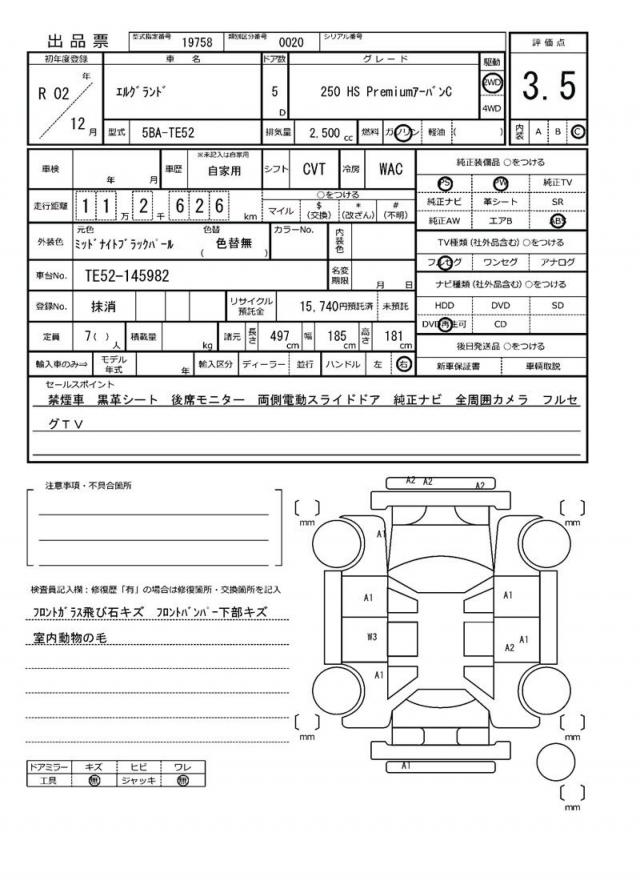 出品票 型式指定番号 19758 類別区分番号 0020 シリアル番号
初年度登録 車 名 ドア数 グレード 駆動 評価点
R 02 年 12 月 エルグランド 5 D 250 HS PremiumアーバンC 2WD 4WD 3.5
型式 5BA-TE52 排気量 2,500 cc 燃料 ガソリン 軽油 ( ) 内装 A B C
車検 年 月 車歴 ※未記入は自家用 自家用 シフト CVT 冷房 WAC
走行距離 1 1 万 2 千 6 2 6 km ○をつける マイル $ (交換) * (改ざん) # (不明)
外装色 元色 ミッドナイトブラックパール 色替 ( 色替無 ) カラーNo. 内装色
車台No. TE52-145982 名変期限 月 日
登録No. 抹消 リサイクル預託金 15,740円預託済 未預託
定員 7( ) 人 積載量 kg 諸元 長さ 497 cm 幅 185 cm 高さ 181 cm
輸入車のみ⇒ モデル年式 年 輸入区分 ディーラー 並行 ハンドル 左 右
純正装備品 ○をつける
PS PW 純正TV
純正ナビ 革シート SR
純正AW エアB ABS
TV種類(社外品含む) ○をつける
フルセグ ワンセグ アナログ
ナビ種類(社外品含む) ○をつける
HDD DVD SD
DVD再生可 CD
後日発送品 ○をつける
新車保証書 車輌取説
セールスポイント
禁煙車 黒革シート 後席モニター 両側電動スライドドア 純正ナビ 全周囲カメラ フルセ
グTV
注意事項・不具合箇所
検査員記入欄:修復歴「有」の場合は修復箇所・交換箇所を記入
フロントガラス飛び石キズ フロントバンパー下部キズ
室内動物の毛
ドアミラー キズ ヒビ ワレ
工具 無 ジャッキ 無
A2 A2 A2
[ ] mm [ ] mm
A1
A1 A1
W3 A2 A1
A1 A1
[ ] mm [ ] mm
A1
[ ] mm